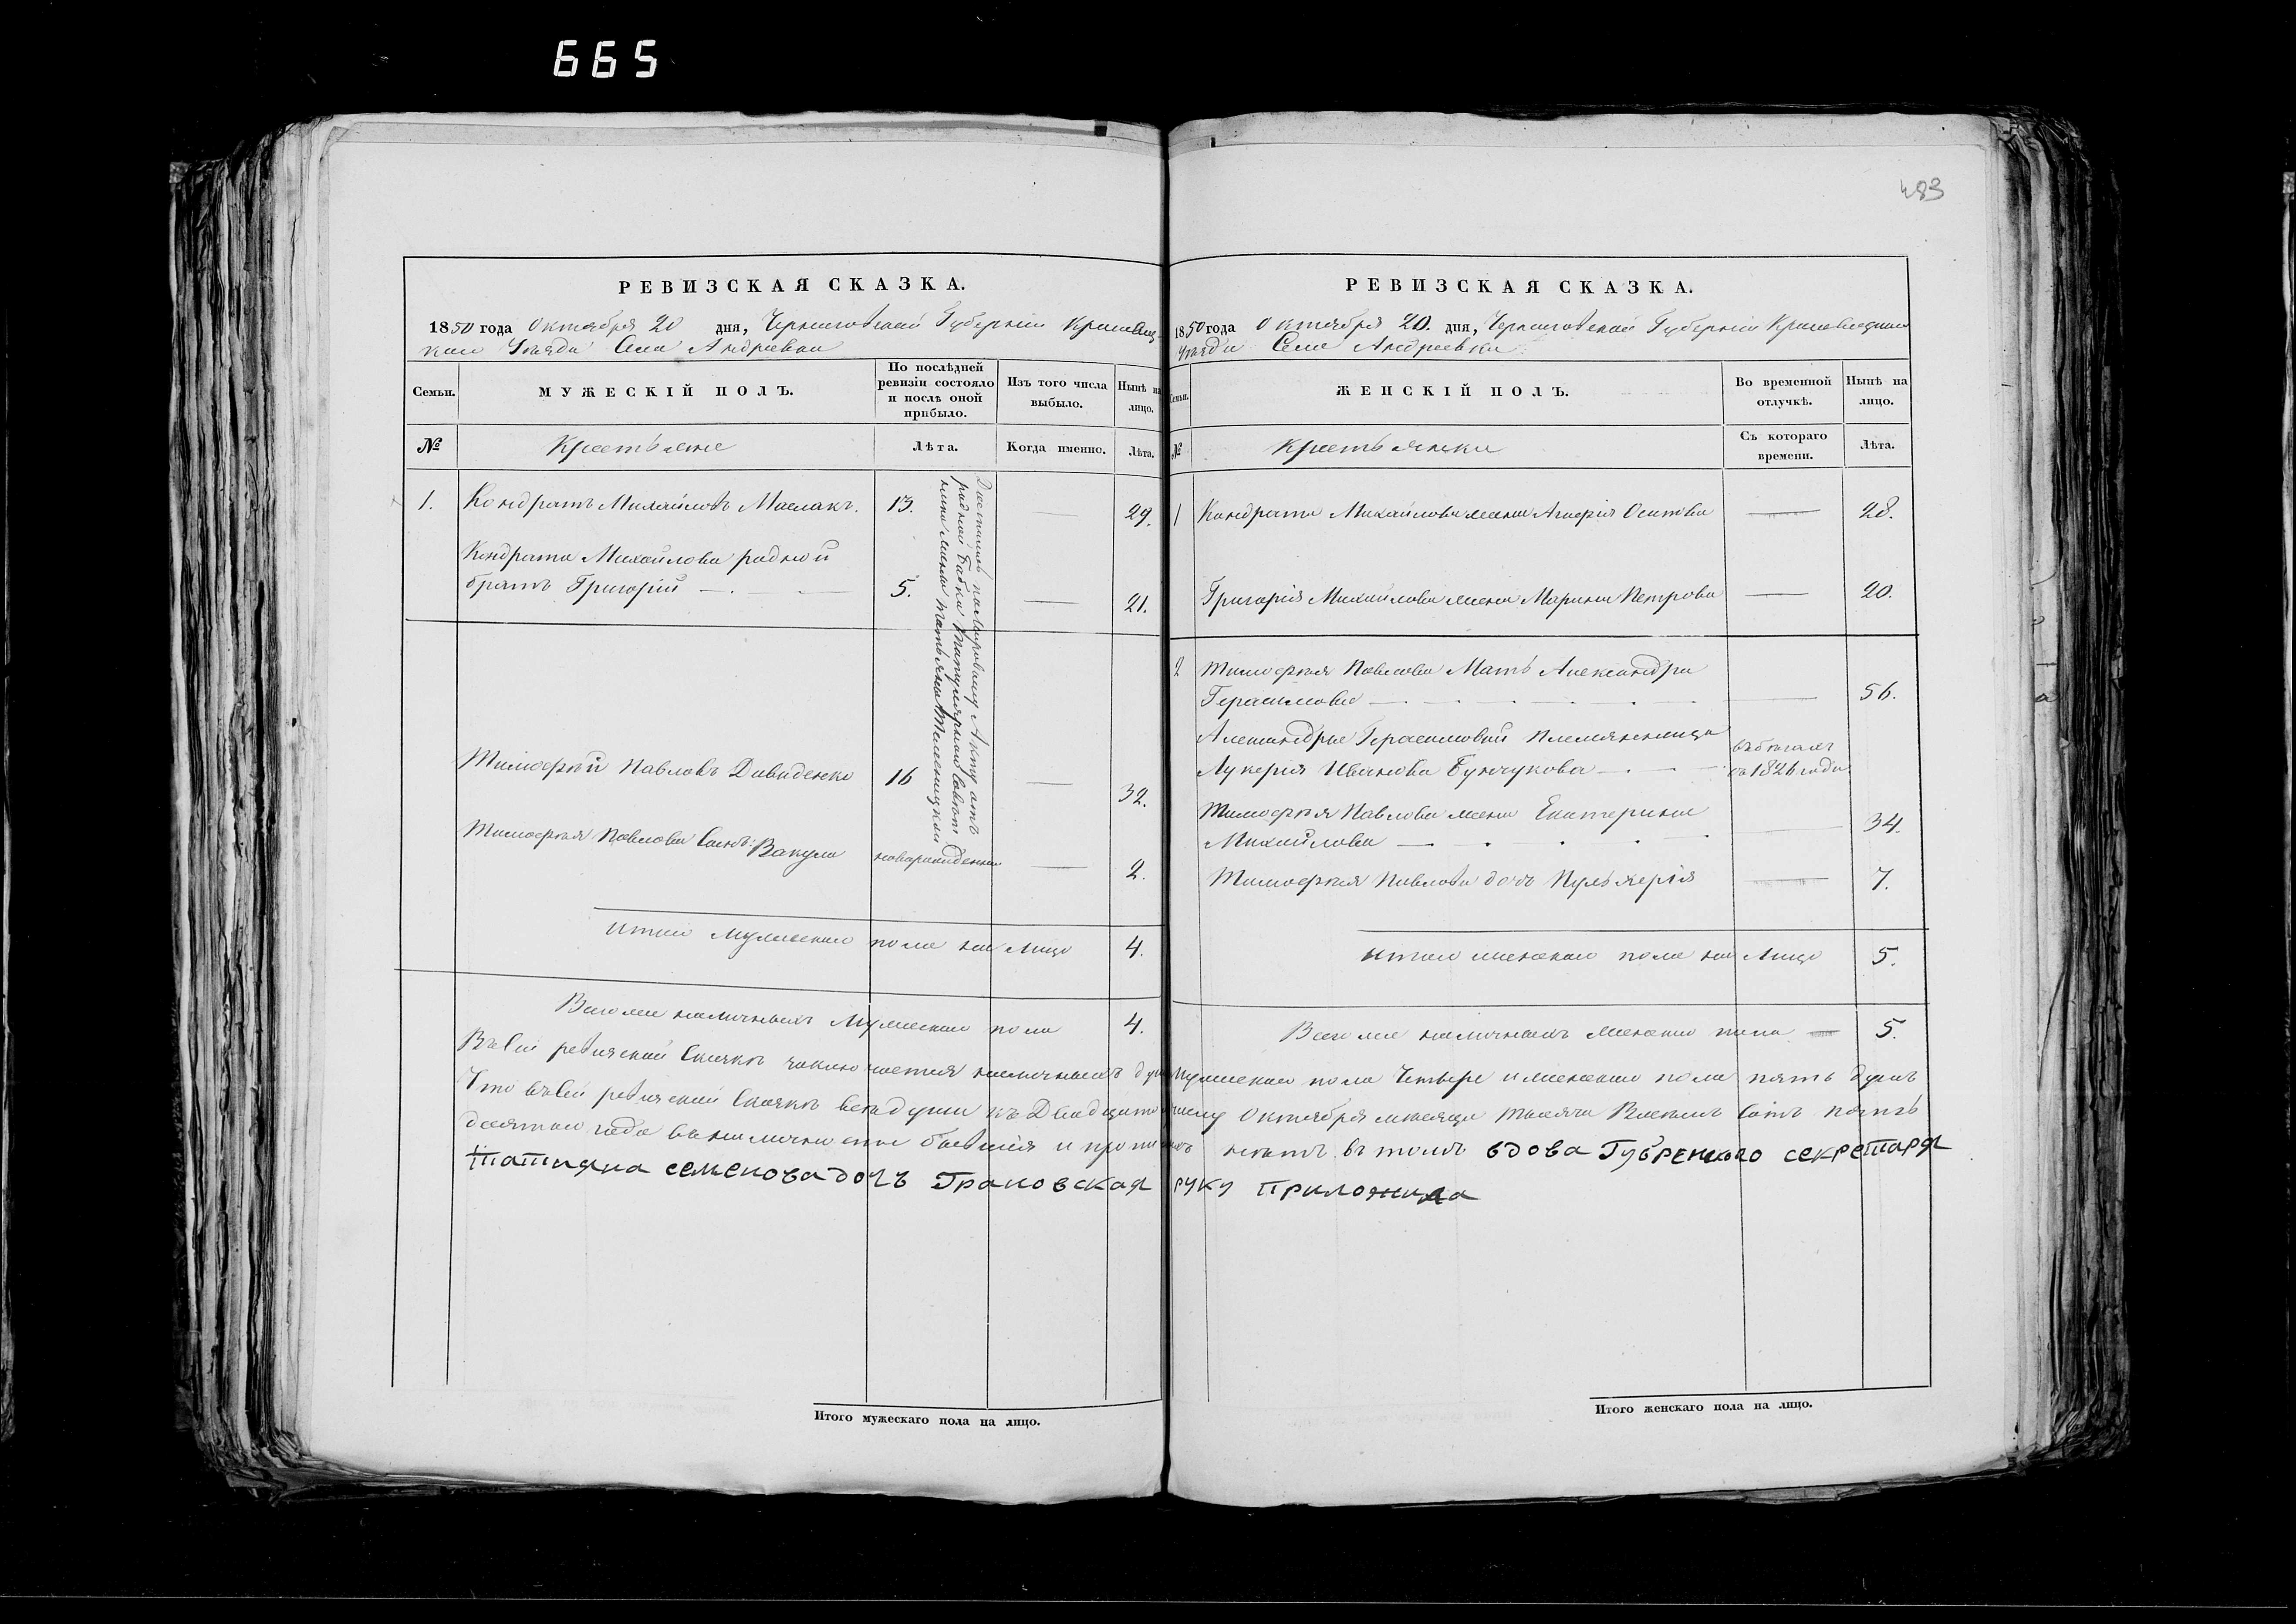 665
483
РЕВИЗСКАЯ СКАЗКА.
1850 года Октября 20 дня, Черниговской Губерніи Кролевец-
каго Уезда Села Андреевки
Семьи. МУЖЕСКІЙ ПОЛЪ. По послѣдней ревизіи состояло и послѣ оной прибыло. Изъ того числа выбыло. Нынѣ на лицо.
№ Крестьяне Лѣта. Когда именно. Лѣта.
1. Кондратъ Михайловъ Маслакъ. 13. — 29.
Кондрата Михайлова родной
братъ Григорій — 5. — 21.
Тимофей Павловъ Давиденко 16 — 32.
Тимофея Павлова Сынъ: Вакула новорожденный — 2.
Итого мужескаго пола на лицо 4.
Всего же наличныхъ Мужескаго пола 4.
Итого мужескаго пола на лицо.
РЕВИЗСКАЯ СКАЗКА.
1850 года Октября 20. дня, Черниговской Губерніи Кролевецкаго
Уезда Села Андреевки
Семьи. ЖЕНСКІЙ ПОЛЪ. Во временной отлучкѣ. Нынѣ на лицо.
№ Крестьянки Съ котораго времени. Лѣта.
1 Кондрата Михайлова жена Осипова — 28.
Григорія Михайлова жена Марина Петрова — 20.
2 Тимофея Павлова Мать Александра
Герасимова — 56.
Александры Герасимовой племянница
Лукерія Иванова Бунчукова — въ бегахъ
съ 1826 года
Тимофея Павлова жена Екатерина
Михайлова — 34.
Тимофея Павлова дочь Пульхерія — 7.
Итого женскаго пола на Лицо 5.
Всего же наличныхъ женскаго пола — 5.
Въ сей ревизской Сказкѣ заключается наличныхъ душъ мужескаго пола Четыре и женскаго пола пять душъ
Что въ сей ревизской Сказкѣ все души къ Двадцатому числу Октября месяца тысяча Восемь Сотъ пять
десятаго года въ наличности бывшія и нетъ въ томъ вдова Губренского секретаря
Татияна семенова дочъ Грановская руку приложила
Итого женскаго пола на лицо.